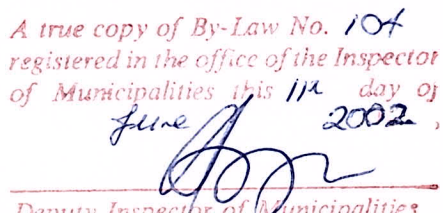 A true copy of By-Law No. 104
registered in the office of the Inspector
of Municipalities this 11th day of
June 2002,
Deputy Inspector of Municipalities